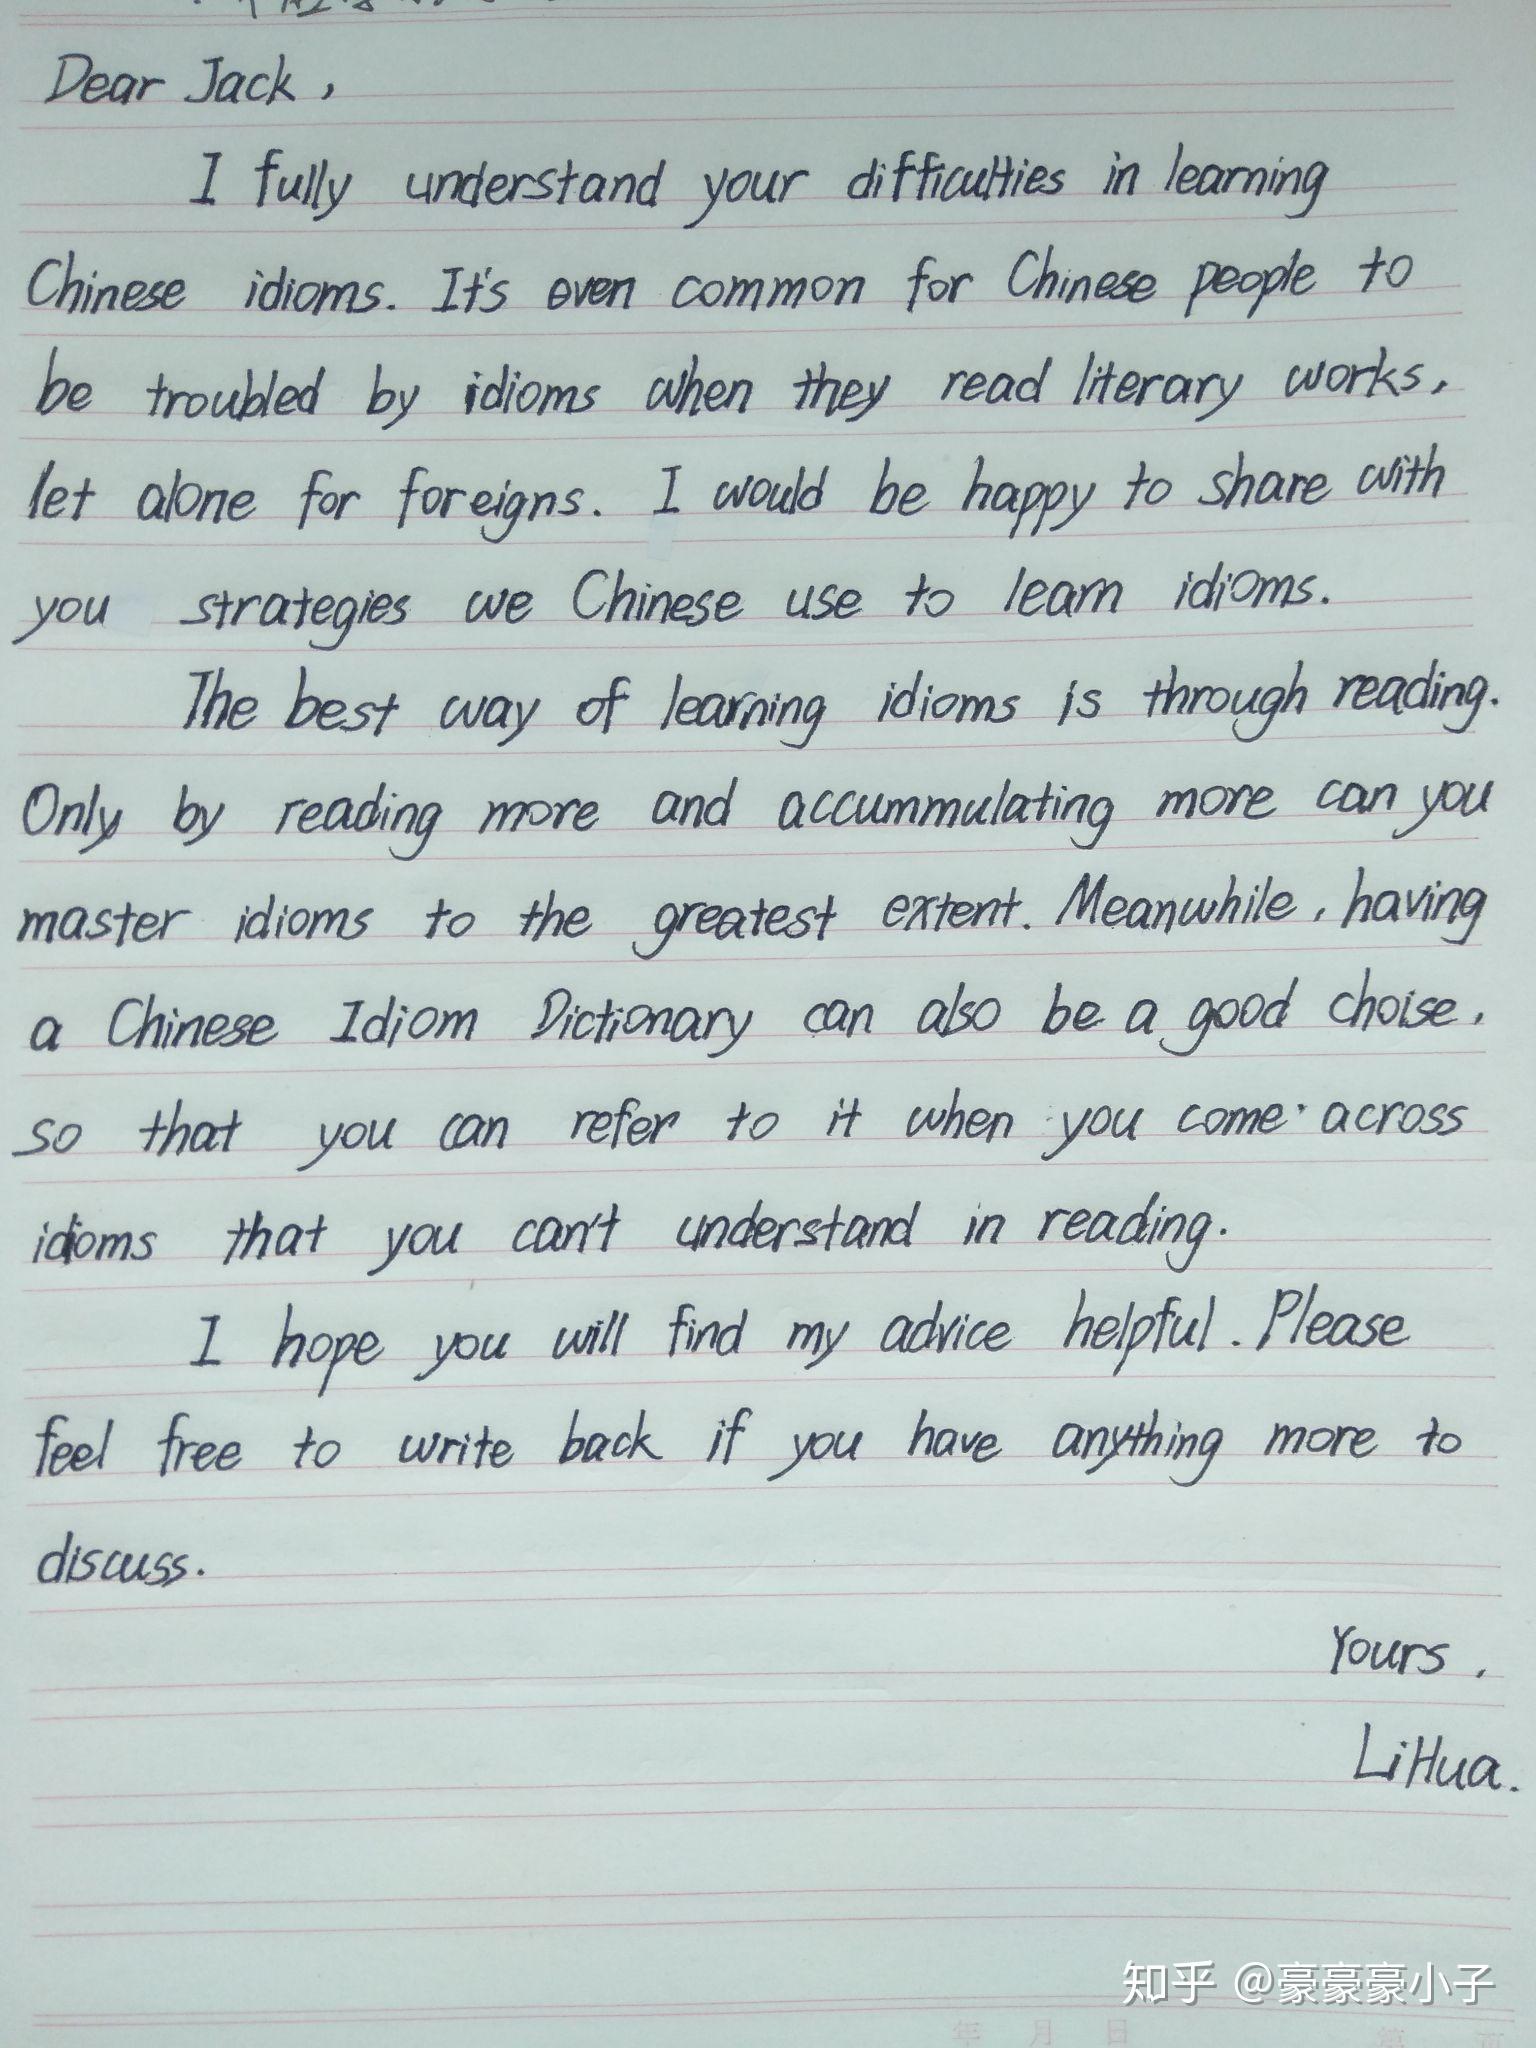 Dear Jack,
I fully understand your difficulties in learning
Chinese idioms. It's even common for Chinese people to
be troubled by idioms when they read literary works,
let alone for foreigns. I would be happy to share with
you strategies we Chinese use to learn idioms.
The best way of learning idioms is through reading.
Only by reading more and accummulating more can you
master idioms to the greatest extent. Meanwhile, having
a Chinese Idiom Dictionary can also be a good choise,
so that you can refer to it when you come across
idioms that you can't understand in reading.
I hope you will find my advice helpful. Please
feel free to write back if you have anything more to
discuss.
Yours,
LiHua.
知乎 @豪豪豪小子
年 月 日 第 页